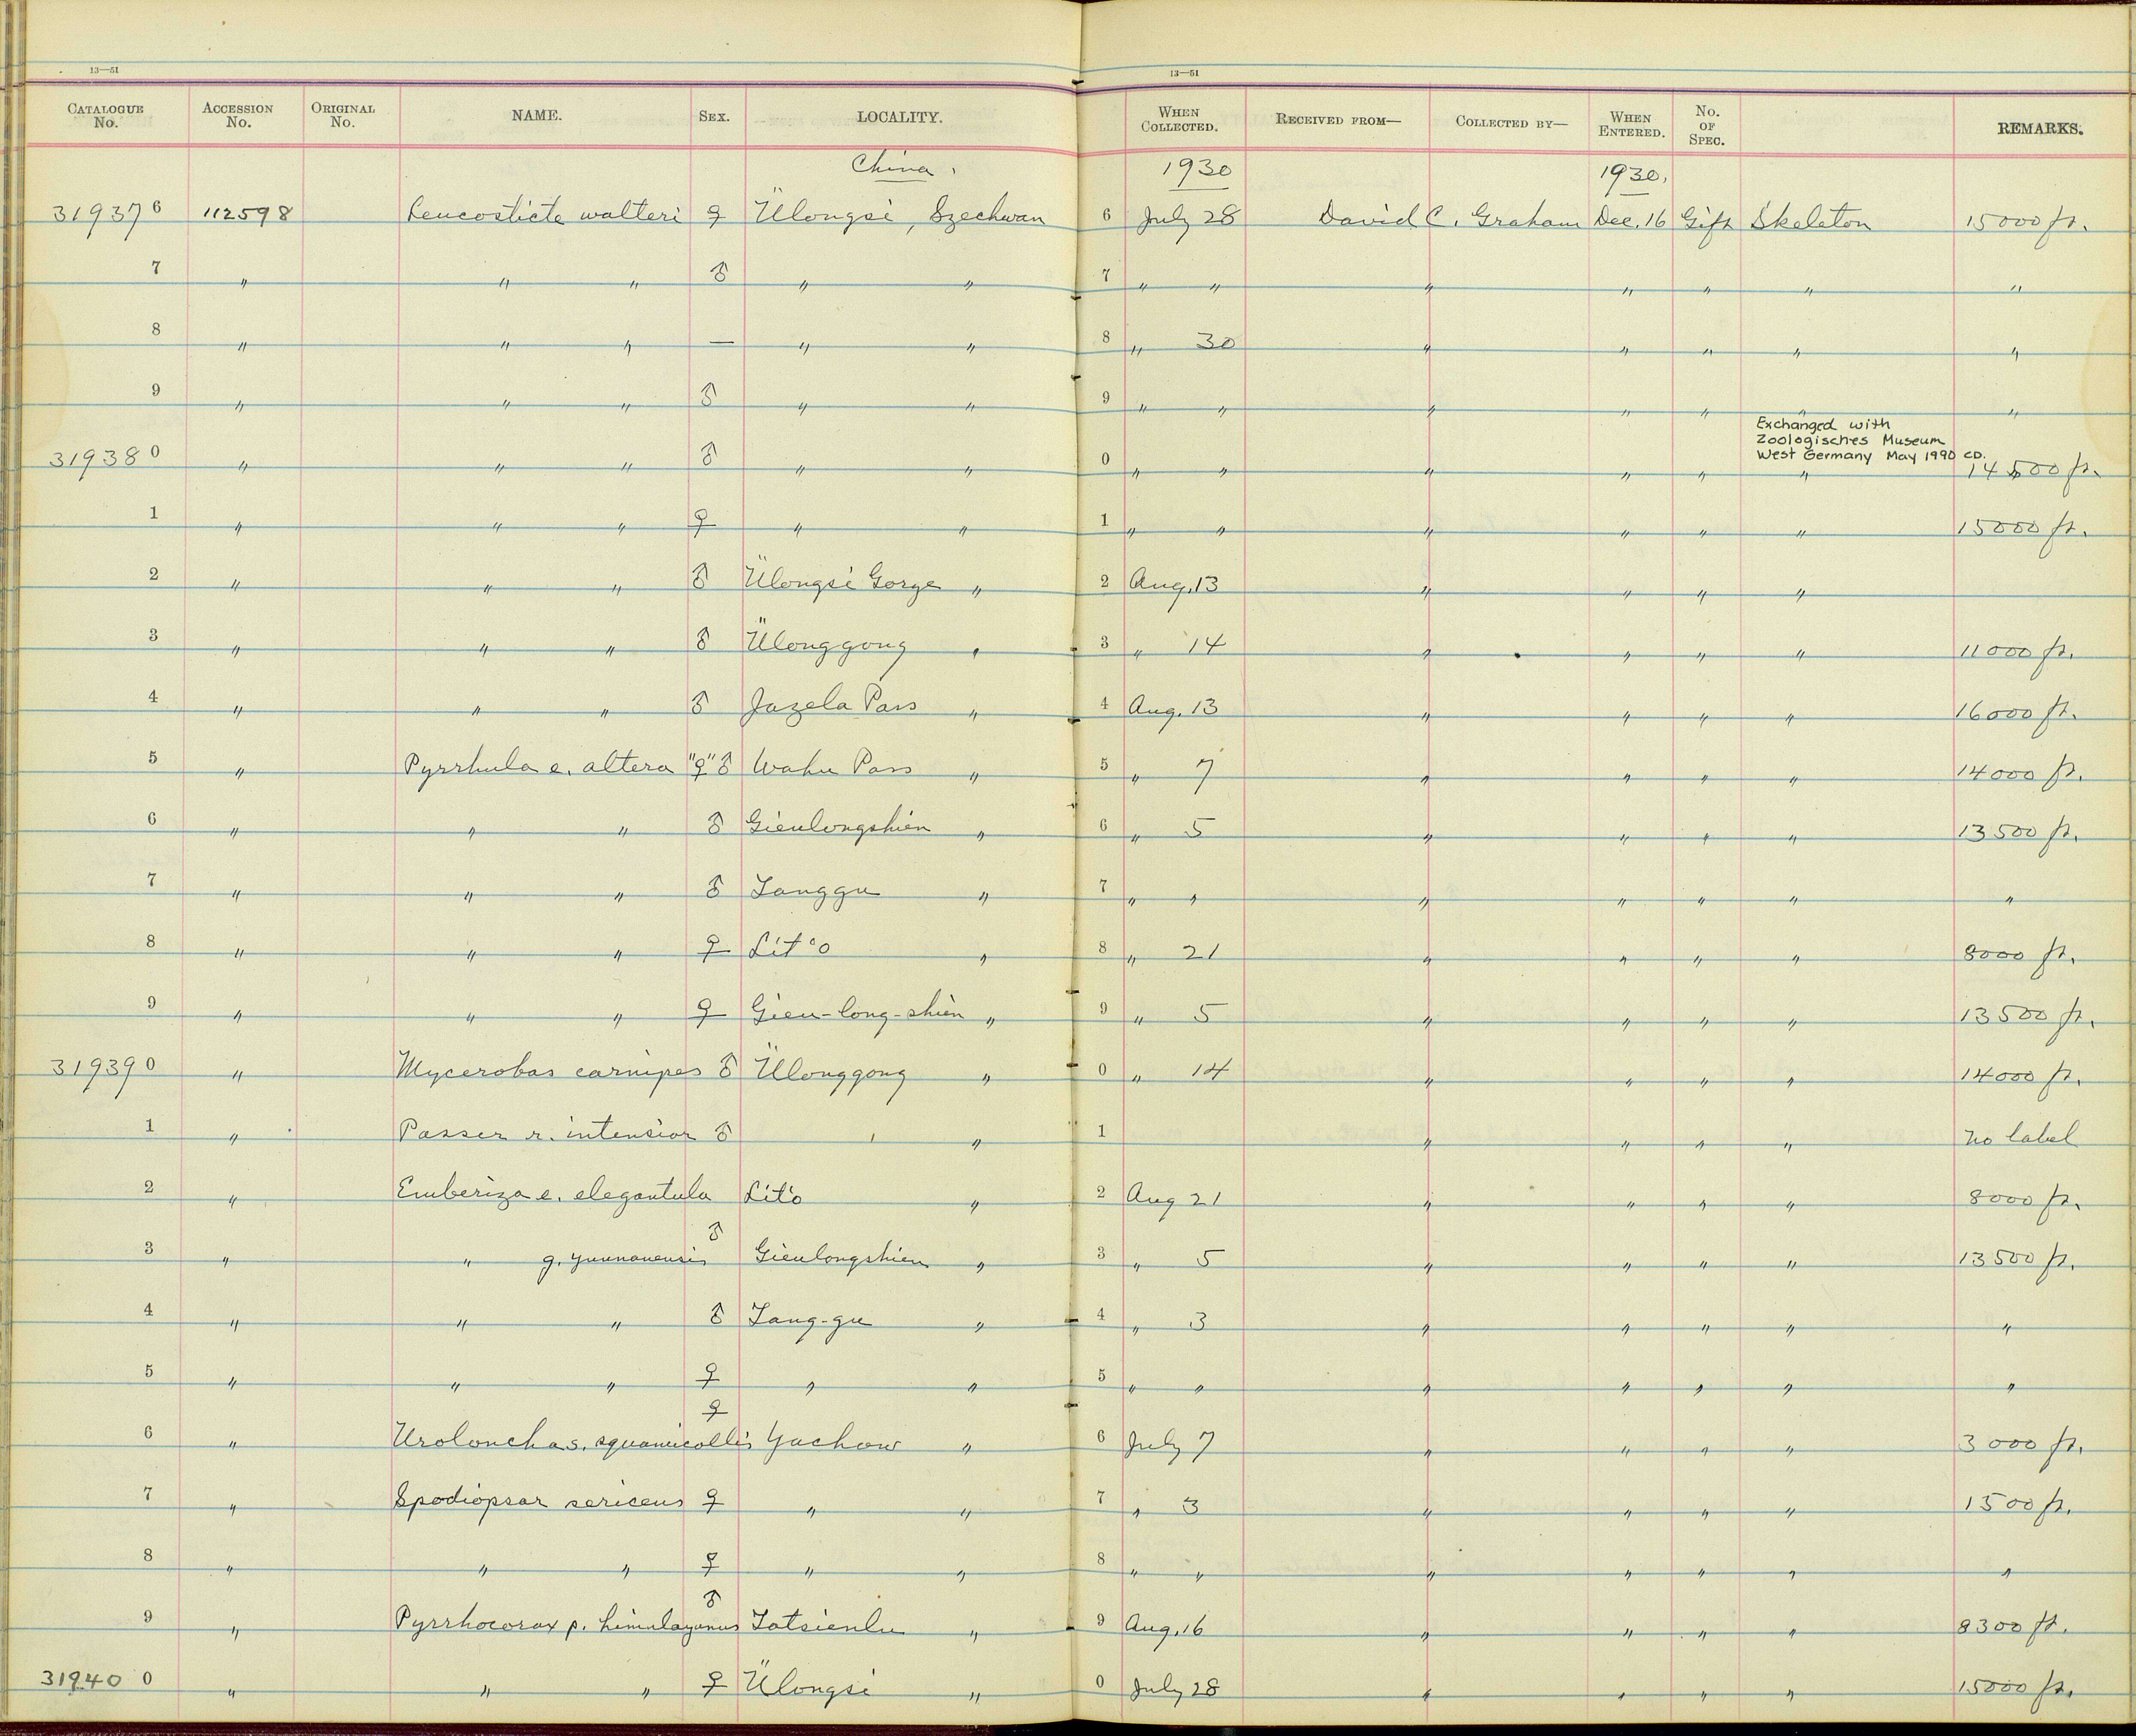 13—51 13—51
CATALOGUE No. ACCESSION No. ORIGINAL No. NAME. SEX. LOCALITY. WHEN COLLECTED. RECEIVED FROM— COLLECTED BY— WHEN ENTERED. No. OF SPEC. REMARKS.
China. 1930 1930.
31937 6 112598 Leucosticte walteri ♀ Ülongsi, Szechwan 6 July 28 David C. Graham Dec. 16 Gift Skeleton 15000 ft.
7 " " " ♂ " " 7 " " " " " " "
8 " " " — " " 8 " 30 " " " " "
9 " " " ♂ " " 9 " " " " " " "
Exchanged with
Zoologisches Museum
West Germany May 1990 CD.
31938 0 " " " ♂ " " 0 " " " " " " 14500 ft.
1 " " " ♀ " " 1 " " " " " " 15000 ft.
2 " " " ♂ Ülongsi Gorge " 2 Aug. 13 " " " "
3 " " " ♂ Ülonggong " 3 " 14 " " " " 11000 ft.
4 " " " ♂ Jazela Pass " 4 Aug. 13 " " " " 16000 ft.
5 " Pyrrhula e. altera "♀" ♂ Wahu Pass " 5 " 7 " " " " 14000 ft.
6 " " " ♂ Gieulongshien " 6 " 5 " " " " 13500 ft.
7 " " " ♂ Tanggu " 7 " " " " " " "
8 " " " ♀ Lit'o " 8 " 21 " " " " 8000 ft.
9 " " " ♀ Gieu-long-shien " 9 " 5 " " " " 13500 ft.
31939 0 " Mycerobas carnipes ♂ Ülonggong " 0 " 14 " " " " 14000 ft.
1 " Passer r. intensior ♂ " 1 " " " " no label
2 " Emberiza e. elegantula Lit'o " 2 Aug 21 " " " " 8000 ft.
3 " " g. yunnanensis ♂ Gieulongshien " 3 " 5 " " " " 13500 ft.
4 " " " ♂ Tang-gu " 4 " 3 " " " " "
5 " " " ♀ " " 5 " " " " " " "
6 " Uroloncha s. squamicollis ♀ Yachow " 6 July 7 " " " " 3000 ft.
7 " Spodiopsar sericeus ♀ " " 7 " 3 " " " " 1500 ft.
8 " " " ♀ " " 8 " " " " " " "
9 " Pyrrhocorax p. himalayanus ♂ Tatsienlu " 9 Aug. 16 " " " " 8300 ft.
31940 0 " " " ♀ Ülongsi " 0 July 28 " " " " 15000 ft.